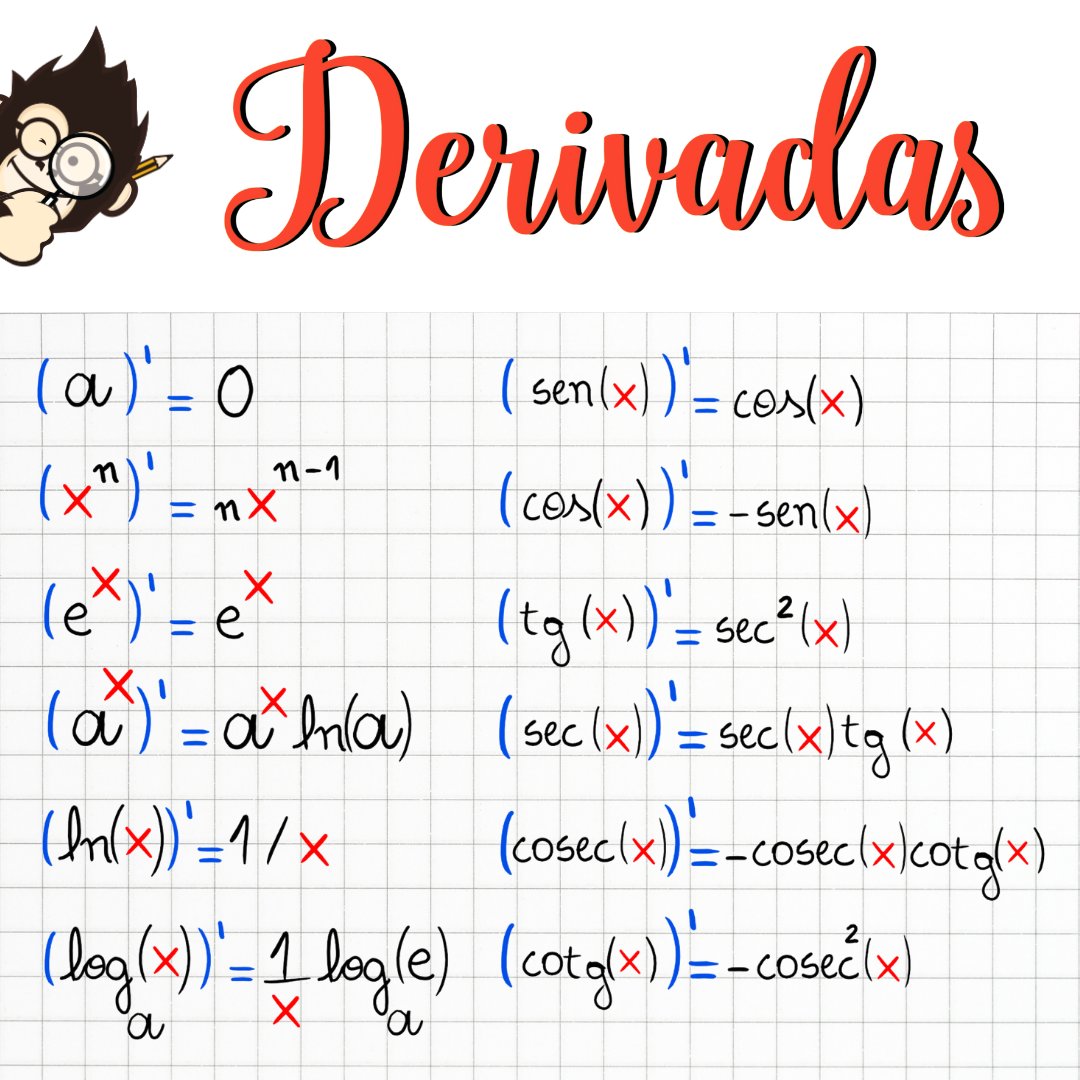 Derivadas
(a)' = 0
(xⁿ)' = nxⁿ⁻¹
(eˣ)' = eˣ
(aˣ)' = aˣ ln(a)
(ln(x))' = 1 / x
(logₐ(x))' = 1/x logₐ(e)
(sen(x))' = cos(x)
(cos(x))' = -sen(x)
(tg(x))' = sec²(x)
(sec(x))' = sec(x)tg(x)
(cosec(x))' = -cosec(x)cotg(x)
(cotg(x))' = -cosec²(x)